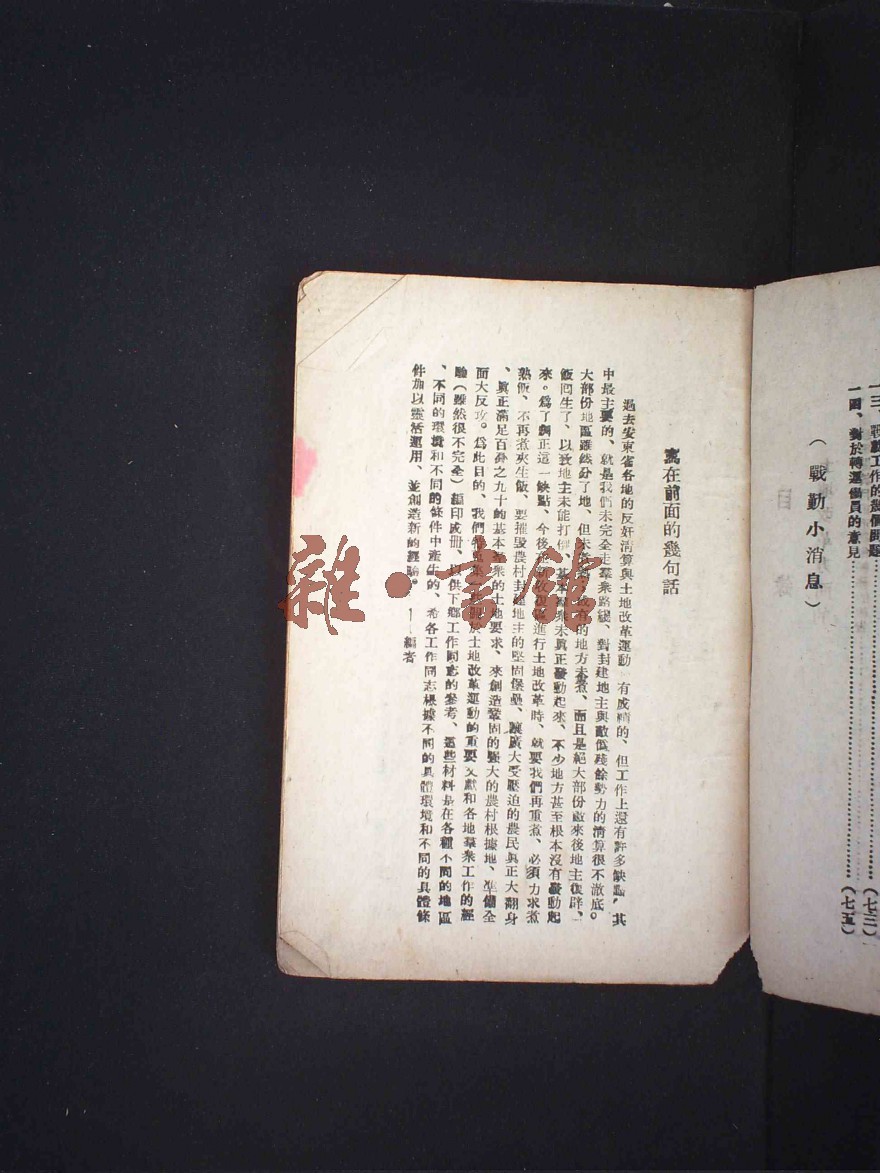 一三、戰勤工作的幾個問題……(七三)
一四、對於轉運傷員的意見……(七五)
(戰勤小消息)
寫在前面的幾句話
過去安東省各地的反奸清算與土地改革運動 有成績的、但工作上還有許多缺點,其
中最主要的、就是我們未完全走羣衆路綫、對封建地主與敵僞殘餘勢力的清算很不澈底。
大部份地區雖然分了地、但未 有的地方未煮、而且是絕大部份敵來後地主復辟、
飯回生了、以致地主未能打倒、基本羣衆未眞正發動起來、不少地方甚至根本沒有發動起
來。爲了糾正這一缺點、今後在新收復區進行土地改革時、就要我們再重煮、必須力求煮
熟飯、不再煮夾生飯、要摧毀農村封建地主的堅固堡壘、讓廣大受壓迫的農民眞正大翻身
、眞正滿足百分之九十的基本羣衆的土地要求、來創造鞏固的强大的農村根據地、準備全
面大反攻。爲此目的、我們 關於土地改革運動的重要文獻和各地羣衆工作的經
驗(雖然很不完全)編印成册、以供下鄉工作同志的參考、這些材料是在各種不同的地區
、不同的環境和不同的條件中產生的、希各工作同志根據不同的具體環境和不同的具體條
件加以靈活運用、並創造新的經驗。
——編者
雜·書館